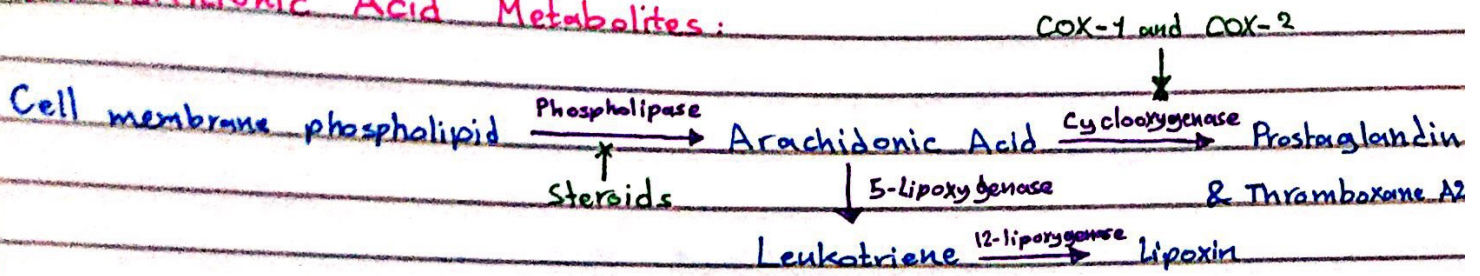 Acid Metabolites:
COX-1 and COX-2
Cell membrane phospholipid Phospholipase Arachidonic Acid Cyclooxygenase Prostaglandin
Steroids 5-Lipoxygenase & Thromboxane A2
Leukotriene 12-lipoxygenase Lipoxin